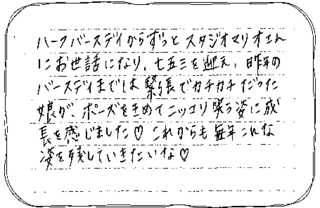 ハーフバースデイからずっとスタジオマリオさん
にお世話になり、七五三を迎え、昨年の
バースデイまでは緊張でカチカチだった
娘が、ポーズをきめてニッコリ笑う姿に成
長を感じました♡これからも毎年こんな
姿を残していきたいな♡